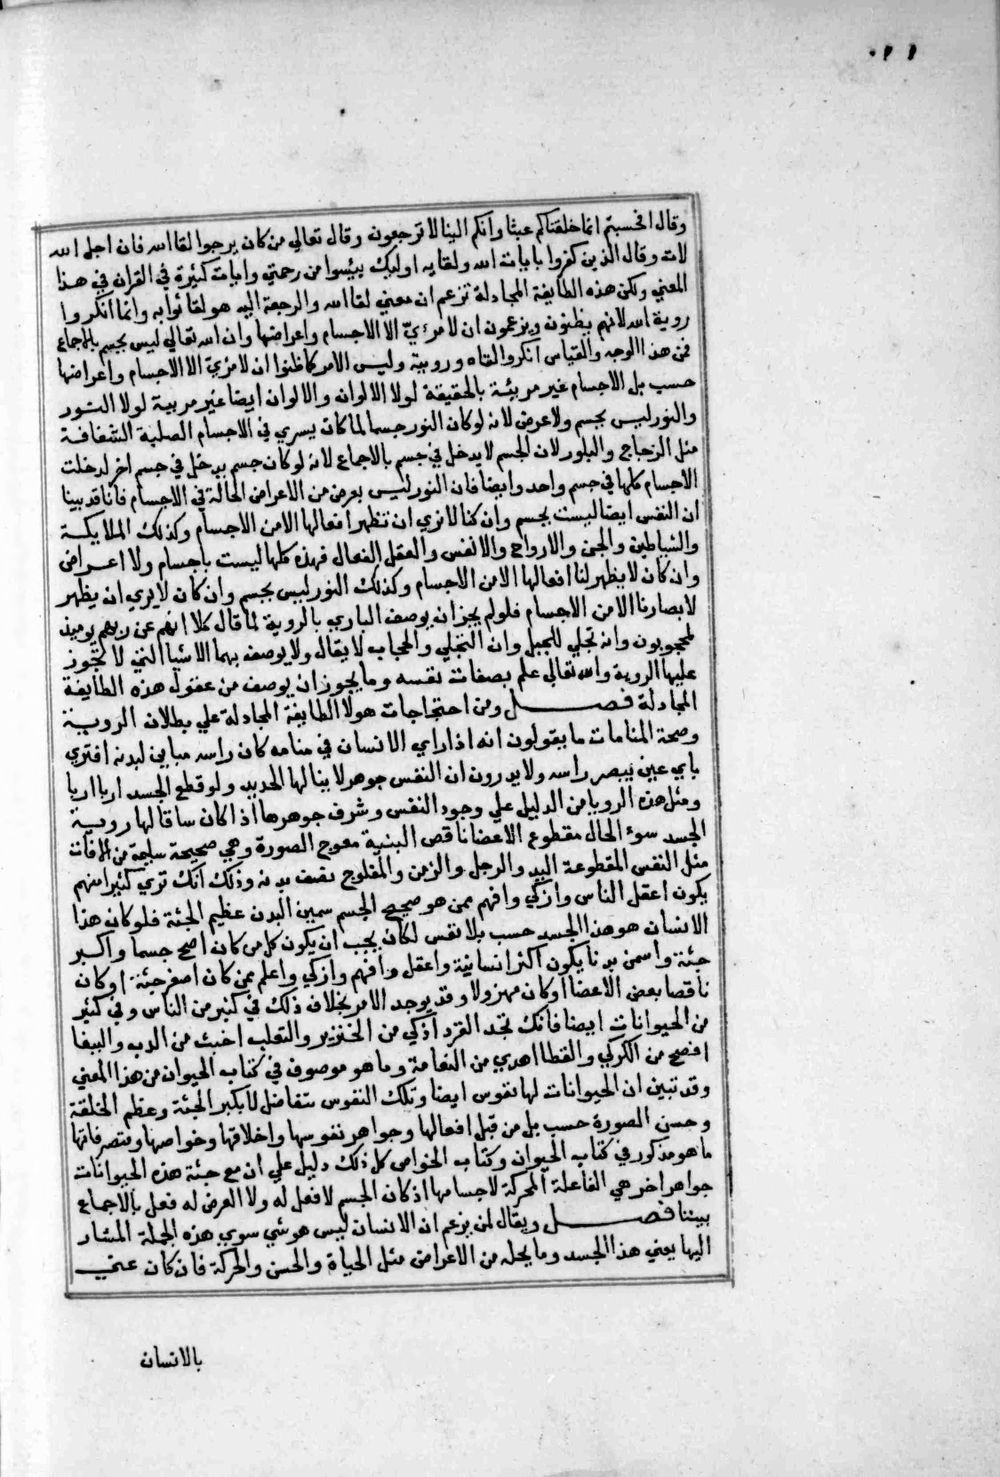 وقال افحسبتم انما خلقناكم عبثا وانكم الينا لا ترجعون وقال تعالي من كان يرجوا لقا الله فان اجل الله
لات وقال الذين كفروا بايات الله ولقايه اوليك ييئسوا من رحمتي وايات كثيرة في القران في هذا
المعني ولكن هذه الطايفة المجادلة تزعم ان معني لقا الله والرجعة اليه هو لقا ثوابه وانما انكروا
روية الله لانهم يظنون ويزعمون ان لا مرئيّ الا الاجسام واعراضها وان الله تعالي ليس بجسم بالاجماع
فمن هذا الوجه والقياس انكروا لقاه ورويته وليس الامر كما ظنوا ان لا مرئيّ الا الاجسام واعراضها
حسب بل الاجسام غير مريئة بالحقيقة لولا الالوان والالوان ايضا غير مريية لولا النور
والنور ليس بجسم ولا عرض لانه لو كان النور جسما لما كان يسري في الاجسام الصلبة الشفافة
مثل الزجاج والبلور لان الجسم لا يدخل في جسم بالاجماع لانه لو كان جسم يدخل في جسم اخر لدخلت
الاجسام كلها في جسم واحد وايضا فان النور ليس بعرض من الاعراض الحالة في الاجسام فانا قد بينا
ان النفس ايضا ليست بجسم وان كنا لا نري ان تظهر افعالها الا من الاجسام وكذلك الملايكة
والشياطين والجن والارواح والانفس والعقل الفعال فهذه كلها ليست باجسام ولا اعراض
وان كان لا يظهر لنا افعالها الا من الاجسام وكذلك النور ليس بجسم وان كان لا يري ان يظهر
لابصارنا الا من الاجسام فلو لم يجز ان يوصف الباري بالروية لما قال كلا انهم عن ربهم يوميذ
لمحجوبون وانه تجلي للجبل وان التجلي والحجاب لا يقال ولا يوصف بهما الاشيا التي لا تجوز
عليها الروية والله تعالي علم بصفات نفسه وما يجوز ان يوصف من عقول هذه الطايفة
المجادلة فصل ومن احتجاجات هولا الطايفة المجادلة علي بطلان الروية
وصحة المنامات ما يقولون انه اذا راي الانسان في منامه كان راسه مباين لبدنه افتري
باي عين يبصر راسه ولا يدرون ان النفس جوهر لا ينالها الحديد ولو قطع الجسد اربا اربا
ومثل هذه الرويا من الدليل علي وجود النفس وشرف جوهرها اذا كان ساقا لها روية
الجسد سوء الحال مقطوع الاعضا ناقص البنية معوج الصورة وهي صحيحة سليمة من الافات
مثل النفس المقطوعة اليد والرجل والزمن والمفلوج نصف بدنه وذلك انك تري كثيرا منهم
يكون اعقل الناس وازكي وافهم ممن هو صحيح الجسم سمين البدن عظيم الجثة فلو كان هذا
الانسان هو هذا الجسد حسب بلا نفس لكان يجب ان يكون كل من كان اصح جسما واكبر
جثة واسمن بدنا يكون اكثر انسانية واعقل وافهم وازكي واعلم ممن كان اصغر جثة او كان
ناقصا بعض الاعضا او كان مهزولا وقد يوجد الامر بخلاف ذلك في كثير من الناس وفي كثير
من الحيوانات ايضا فانك تجد القرد اذكي من الخنزير والثعلب اخبث من الدب والببغا
افصح من الكركي والقطا اهدي من النعامة وما هو موصوف في كتاب الحيوان من هذا المعني
وقد تبين ان الحيوانات لها نفوس ايضا وتلك النفوس تتفاضل لا بكبر الجثة وعظم الخلقة
وحسن الصورة حسب بل من قبل افعالها وجواهر نفوسها واخلاقها وخواصها ومتصرفاتها
ما هو مذكور في كتاب الحيوان وكتاب الخواص كل ذلك دليل علي ان مع جثة هذه الحيوانات
جواهر اخر هي الفاعلة المحركة لاجسامها اذ كان الجسم لا فعل له ولا العرض له فعل بالاجماع
بيننا فصل ويقال لمن يزعم ان الانسان ليس هو شي سوي هذه الجملة المشار
اليها يعني هذا الجسد وما يحله من الاعراض مثل الحياة والحس والحركة فان كان عني
بالانسان